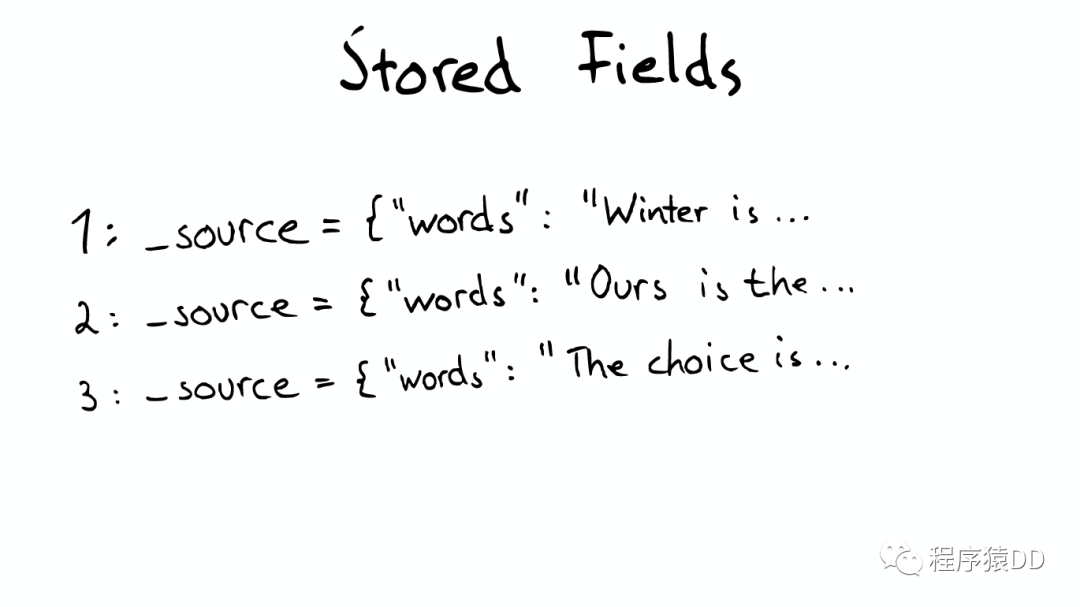 Stored Fields
1: _source = {"words": "Winter is...
2: _source = {"words": "Ours is the...
3: _source = {"words": "The choice is...
程序猿DD